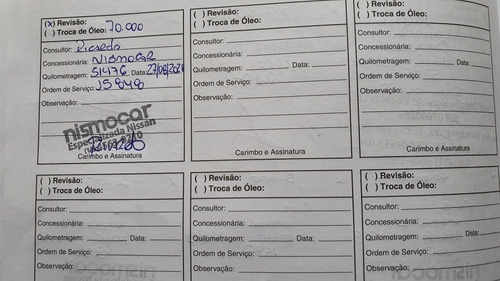 (x) Revisão: 70.000
( ) Troca de Óleo:
Consultor: Ricardo
Concessionária: Nismocar
Quilometragem: 51476 Data: 27/08/202
Ordem de Serviço: 15848
Observação:
nismocar
Especializada Nissan
Carimbo e Assinatura
( ) Revisão:
( ) Troca de Óleo:
Consultor:
Concessionária:
Quilometragem: Data:
Ordem de Serviço:
Observação:
Carimbo e Assinatura
( ) Troca de Óleo:
Consultor:
Concessionária:
Quilometragem: Data:
Ordem de Serviço:
Observação:
Carimbo e Assinatura
( ) Revisão:
( ) Troca de Óleo:
Consultor:
Concessionária:
Quilometragem: Data:
Ordem de Serviço:
Observação:
( ) Revisão:
( ) Troca de Óleo:
Consultor:
Concessionária:
Quilometragem: Data:
Ordem de Serviço:
Observação:
( ) Revisão:
( ) Troca de Óleo:
Consultor:
Concessionária:
Quilometragem: Data:
Ordem de Serviço:
Observação: